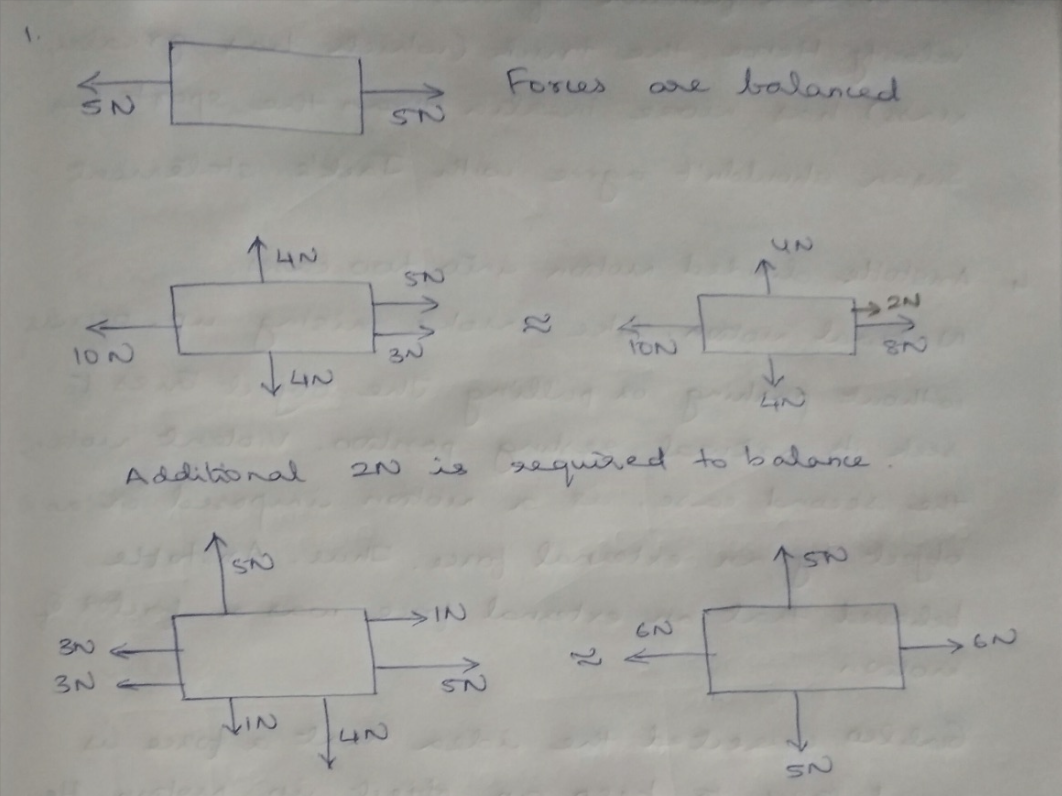 1.
5N 5N Forces are balanced
4N
5N
10N 3N
4N
≈
4N
2N
10N 8N
4N
Additional 2N is required to balance.
5N
1N
3N
3N 5N
1N 4N
≈
5N
6N 6N
5N